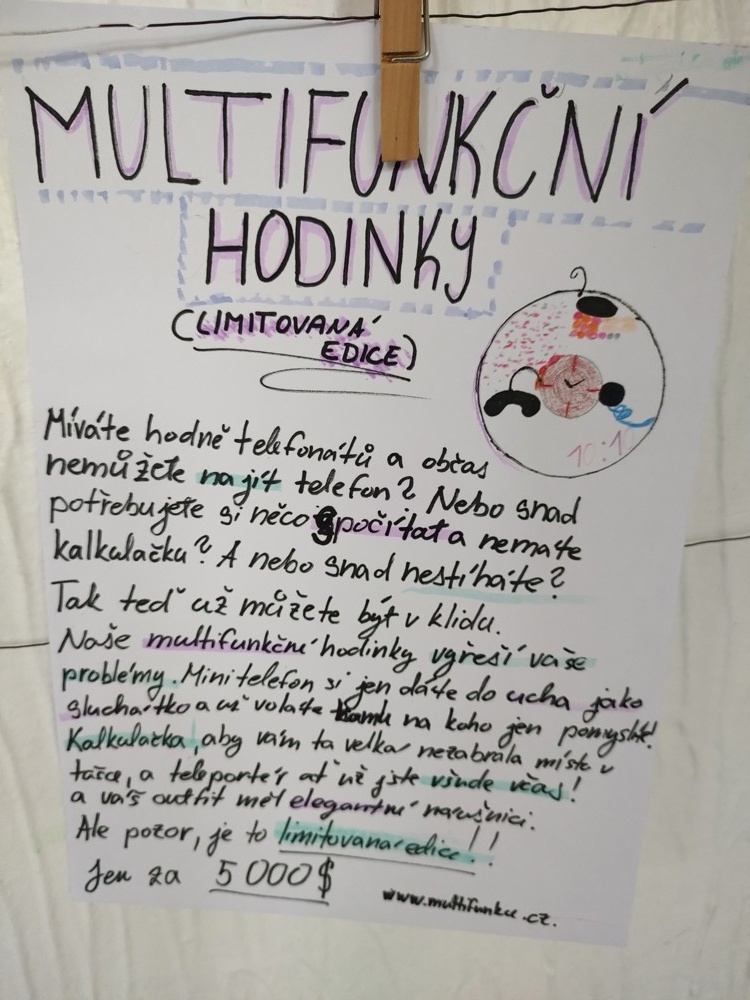 MULTIFUNKČNÍ
HODINKY
(LIMITOVANÁ
EDICE)
10:10
Míváte hodně telefonátů a občas
nemůžete najít telefon? Nebo snad
potřebujete si něco spočítat a nemáte
kalkulačku? A nebo snad nestíháte?
Tak teď už můžete být v klidu.
Naše multifunkční hodinky vyřeší vaše
problémy. Mini telefon si jen dáte do ucha jako
sluchátko a už voláte na koho jen pomyslíte!
Kalkulačka, aby vám ta velká nezabrala místo v
tašce, a teleportér ať už jste všude včas!
a váš outfit měl elegantní náušnici.
Ale pozor, je to limitovaná edice!!
Jen za 5 000$
www.multifunkce.cz.